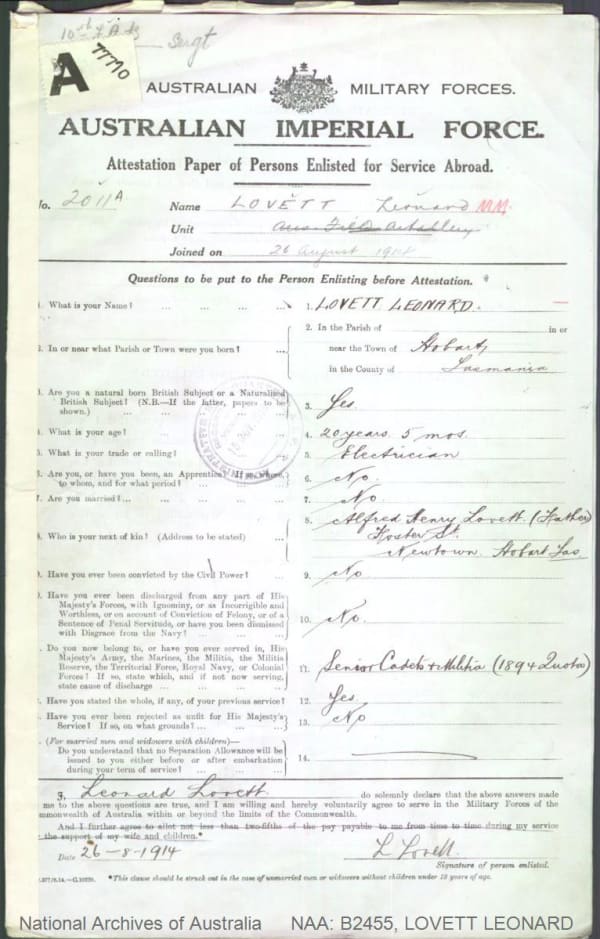 Sergt
A 7770
AUSTRALIAN MILITARY FORCES.
AUSTRALIAN IMPERIAL FORCE.
Attestation Paper of Persons Enlisted for Service Abroad.
No. 2011A Name LOVETT Leonard MM
Unit Aus. Field Artillery
Joined on 26 August 1914
Questions to be put to the Person Enlisting before Attestation. *
1. What is your Name? ... ... ... ... 1. LOVETT LEONARD.
2. In the Parish of in or
2. In or near what Parish or Town were you born? ... near the Town of Hobart,
in the County of Tasmania
3. Are you a natural born British Subject or a Naturalised
British Subject? (N.B.—If the latter, papers to be
shown.) ... ... ... ... 3. Yes.
4. What is your age? ... ... ... 4. 20 years. 5 mos.
5. What is your trade or calling? ... 5. Electrician
6. Are you, or have you been, an Apprentice? If so, where,
to whom, and for what period? ... ... 6. No.
7. Are you married?... ... ... ... 7. No.
8. Alfred Henry Lovett. (Father)
8. Who is your next of kin? (Address to be stated) ... Foster St.
Newtown. Hobart Tas
9. Have you ever been convicted by the Civil Power? ... 9. No
10. Have you ever been discharged from any part of His
Majesty's Forces, with Ignominy, or as Incorrigible and
Worthless, or on account of Conviction of Felony, or of a
Sentence of Penal Servitude, or have you been dismissed
with Disgrace from the Navy? ... ... 10. No.
. Do you now belong to, or have you ever served in, His
Majesty's Army, the Marines, the Militia, the Militia
Reserve, the Territorial Force, Royal Navy, or Colonial
Forces? If so, state which, and if not now serving,
state cause of discharge ... ... ... 11. Senior Cadets & Militia (1894 Quota)
. Have you stated the whole, if any, of your previous service? 12. Yes.
. Have you ever been rejected as unfit for His Majesty's
Service? If so, on what grounds? ... ... 13. No
. (For married men and widowers with children)—
Do you understand that no Separation Allowance will be
issued to you either before or after embarkation
during your term of service? ... ... 14.
I, Leonard Lovett. do solemnly declare that the above answers made
me to the above questions are true, and I am willing and hereby voluntarily agree to serve in the Military Forces of the
mmonwealth of Australia within or beyond the limits of the Commonwealth.
And I further agree to allot not less than two-fifths of the pay payable to me from time to time during my service
the support of my wife and children.*
Date 26-8-1914 L Lovett.
Signature of person enlisted.
*This clause should be struck out in the case of unmarried men or widowers without children under 18 years of age.
National Archives of Australia NAA: B2455, LOVETT LEONARD